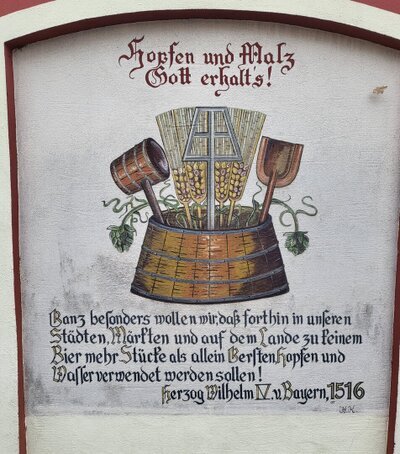 Hopfen und Malz
Gott erhalt's!
Ganz besonders wollen wir, daß forthin in unseren
Städten, Märkten und auf dem Lande zu keinem
Bier mehr Stücke als allein Gersten, Hopfen und
Wasser verwendet werden sollen!
Herzog Wilhelm IV. v. Bayern, 1516